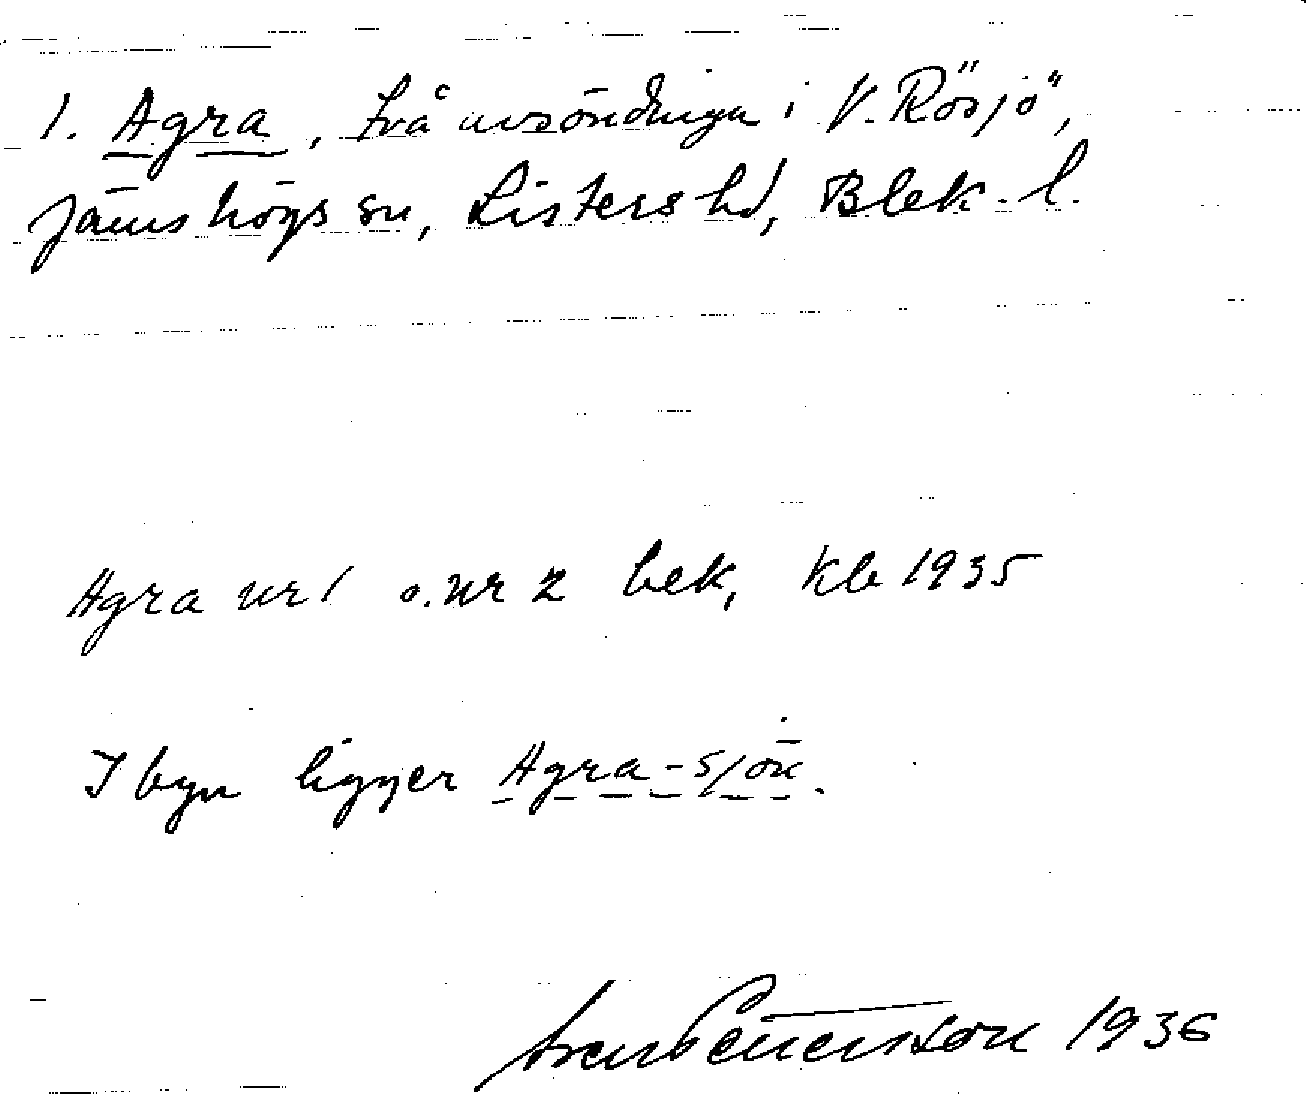 1. Agra, två avsöndringar i V. Rösjö,
Jämshögs sn, Listers hd, Blek. l.
Agra nr 1 o. nr 2 bek, kb 1935
I byn ligger Agra-sjön.
1936